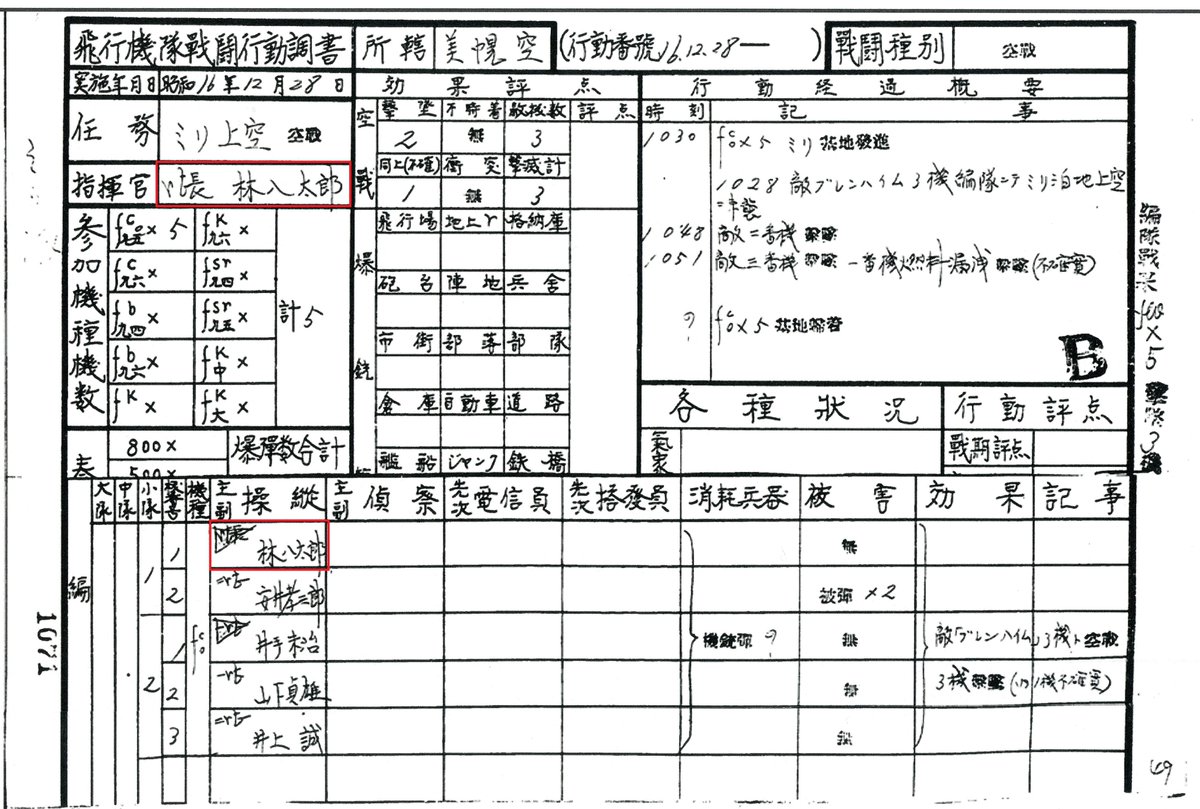 飛行機隊戰闘行動調書 所轄 美幌空 (行動番號 16.12.28— ) 戰闘種別 空戰
実施年月日 昭和16年12月28日 効果評点 行動経過概要
空戰 撃墜 不時着 敵機数 評点 時刻 記事
任務 ミリ上空 空戰 2 無 3
1030 fc0×5 ミリ基地發進
同上(不確) 衝突 撃滅計
指揮官 長 林八太郎 1 無 3
1028 敵ブレンハイム3機編隊ニテミリ泊地上空
ニ来襲
飛行場 地上 格納庫
1048 敵二番機 撃墜
1051 敵三番機 撃墜 一番機燃料漏洩 撃墜(不確實)
参加機種機数 fc零×5 fK九六×
fc九六× fsr九四×
fb九四× fsr九五×
fb九六× fK中×
fK× fK大×
計5
爆 銃
砲台 陣地 兵舎
? fc0×5 基地帰着
市街 部落 部隊
B
倉庫 自動車 道路
各種状況 行動評点
800× 爆彈数合計
艦船 ジャンク 鉄橋
氣象 戰期評点
500×
編隊戰果 fc0×5 撃墜3機
大隊 中隊 小隊 機番 機種 主副 操縦 主副 偵察 先次 電信員 先次 搭發員 消耗兵器 被害 効果 記事
編
1 1 林八太郎 無
2 安井孝三郎 被彈×2
fc0
2 1 井手末治 機銃弾 ? 無 敵ブレンハイム3機ト空戰
2 山下貞雄 無 3機撃墜(内1機不確實)
3 井上誠 無
1071
49